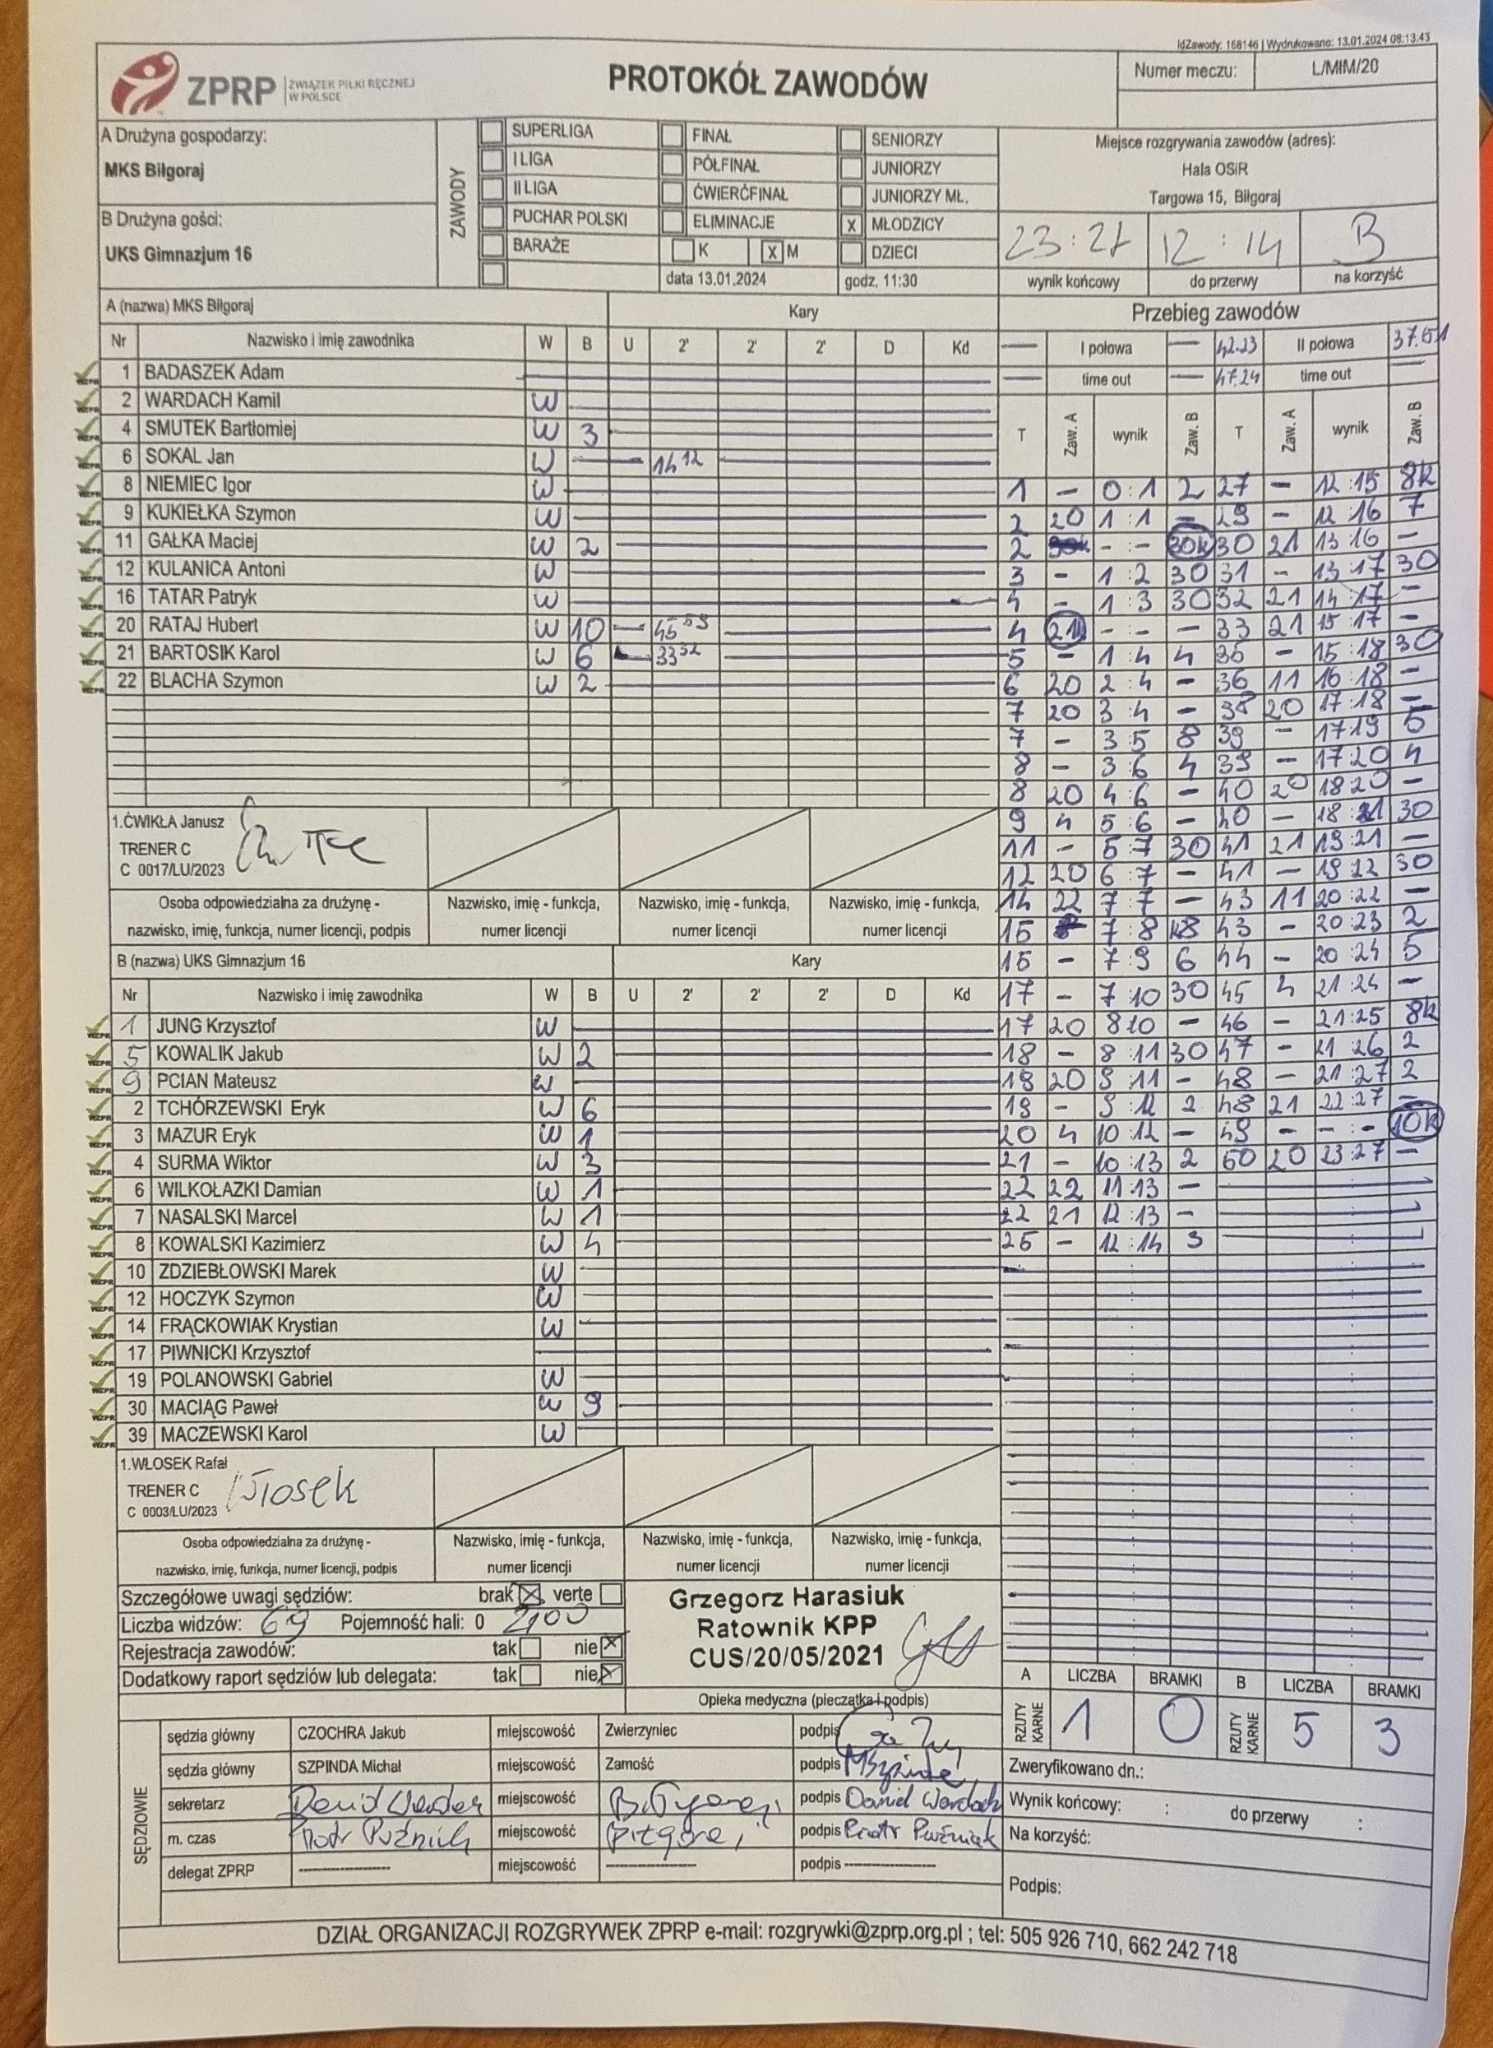 IdZawody: 168146 | Wydrukowano: 13.01.2024 08:13:43
ZPRP ZWIĄZEK PIŁKI RĘCZNEJ W POLSCE
PROTOKÓŁ ZAWODÓW
Numer meczu: L/MłM/20
A Drużyna gospodarzy:
MKS Biłgoraj
B Drużyna gości:
UKS Gimnazjum 16
ZAWODY
SUPERLIGA
I LIGA
II LIGA
PUCHAR POLSKI
BARAŻE
FINAŁ
PÓŁFINAŁ
ĆWIERĆFINAŁ
ELIMINACJE
K X M
data 13.01.2024
SENIORZY
JUNIORZY
JUNIORZY MŁ.
X MŁODZICY
DZIECI
godz. 11:30
Miejsce rozgrywania zawodów (adres):
Hala OSiR
Targowa 15, Biłgoraj
23:27 12:14 B
wynik końcowy do przerwy na korzyść
A (nazwa) MKS Biłgoraj Kary
Nr Nazwisko i imię zawodnika W B U 2' 2' 2' D Kd
1 BADASZEK Adam
2 WARDACH Kamil W
4 SMUTEK Bartłomiej W 3
6 SOKAL Jan W 14 12
8 NIEMIEC Igor W
9 KUKIEŁKA Szymon W
11 GAŁKA Maciej W 2
12 KULANICA Antoni W
16 TATAR Patryk W
20 RATAJ Hubert W 10 45 53
21 BARTOSIK Karol W 6 33 52
22 BLACHA Szymon W 2
1.ĆWIKŁA Janusz
TRENER C
C 0017/LU/2023
Osoba odpowiedzialna za drużynę -
nazwisko, imię, funkcja, numer licencji, podpis
Nazwisko, imię - funkcja,
numer licencji
Nazwisko, imię - funkcja,
numer licencji
Nazwisko, imię - funkcja,
numer licencji
B (nazwa) UKS Gimnazjum 16 Kary
Nr Nazwisko i imię zawodnika W B U 2' 2' 2' D Kd
1 JUNG Krzysztof W
5 KOWALIK Jakub W 2
9 PCIAN Mateusz W
2 TCHÓRZEWSKI Eryk W 6
3 MAZUR Eryk W 1
4 SURMA Wiktor W 3
6 WILKOŁAZKI Damian W 1
7 NASALSKI Marcel W 1
8 KOWALSKI Kazimierz W 4
10 ZDZIEBŁOWSKI Marek W
12 HOCZYK Szymon W
14 FRĄCKOWIAK Krystian W
17 PIWNICKI Krzysztof
19 POLANOWSKI Gabriel W
30 MACIĄG Paweł W 9
39 MACZEWSKI Karol W
1.WŁOSEK Rafał
TRENER C
C 0003/LU/2023
Włosek
Osoba odpowiedzialna za drużynę -
nazwisko, imię, funkcja, numer licencji, podpis
Nazwisko, imię - funkcja,
numer licencji
Nazwisko, imię - funkcja,
numer licencji
Nazwisko, imię - funkcja,
numer licencji
Przebieg zawodów
— I połowa — 42.23 II połowa 37.51
— time out — 47.24 time out —
T Zaw. A wynik Zaw. B T Zaw. A wynik Zaw. B
1 - 0:1 2 27 - 12:15 8k
2 20 1:1 - 29 - 12:16 7
2 -:- 30k 30 21 13:16 -
3 - 1:2 30 31 - 13:17 30
4 - 1:3 30 32 21 14:17 -
4 21 -:- - 33 21 15:17 -
5 - 1:4 4 35 - 15:18 30
6 20 2:4 - 36 11 16:18 -
7 20 3:4 - 38 20 17:18 -
7 - 3:5 8 39 - 17:19 5
8 - 3:6 4 39 - 17:20 4
8 20 4:6 - 40 20 18:20 -
9 4 5:6 - 40 - 18:21 30
11 - 5:7 30 41 21 19:21 -
12 20 6:7 - 41 - 19:22 30
14 22 7:7 - 43 11 20:22 -
15 7:8 k8 43 - 20:23 2
15 - 7:9 6 44 - 20:24 5
17 - 7:10 30 45 4 21:24 -
17 20 8:10 - 46 - 21:25 8k
18 - 8:11 30 47 - 21:26 2
18 20 9:11 - 48 - 21:27 2
19 - 9:12 2 48 21 22:27 -
20 4 10:12 - 49 - -:- 10k
21 - 10:13 2 50 20 23:27 -
22 22 11:13 -
22 21 12:13 -
25 - 12:14 3
Szczegółowe uwagi sędziów: brak X verte
Liczba widzów: 69 Pojemność hali: 0 2100
Rejestracja zawodów: tak nie X
Dodatkowy raport sędziów lub delegata: tak nie X
Grzegorz Harasiuk
Ratownik KPP
CUS/20/05/2021
Opieka medyczna (pieczątka i podpis)
A LICZBA BRAMKI B LICZBA BRAMKI
RZUTY KARNE 1 0 RZUTY KARNE 5 3
SĘDZIOWIE
sędzia główny CZOCHRA Jakub miejscowość Zwierzyniec podpis
sędzia główny SZPINDA Michał miejscowość Zamość podpis MSzpinda
sekretarz Daniel Wardach miejscowość Biłgoraj podpis Daniel Wardach
m. czas Piotr Puźniak miejscowość Biłgoraj podpis Piotr Puźniak
delegat ZPRP ---------- miejscowość ---------- podpis ----------
Zweryfikowano dn.:
Wynik końcowy: : do przerwy :
Na korzyść:
Podpis:
DZIAŁ ORGANIZACJI ROZGRYWEK ZPRP e-mail: rozgrywki@zprp.org.pl ; tel: 505 926 710, 662 242 718